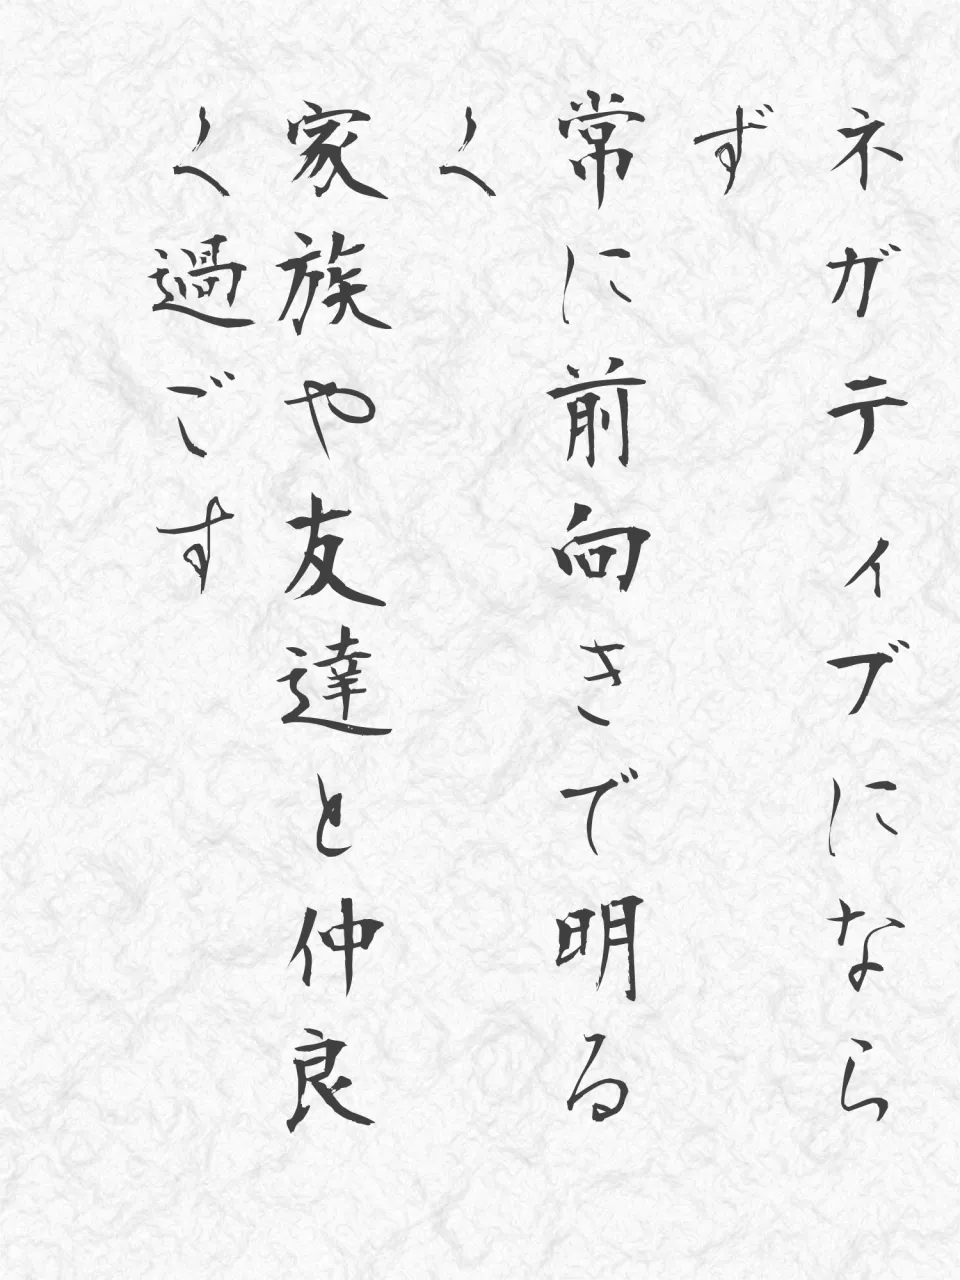 ネガティブになら
ず
常に前向きで明る
く
家族や友達と仲良
く過ごす